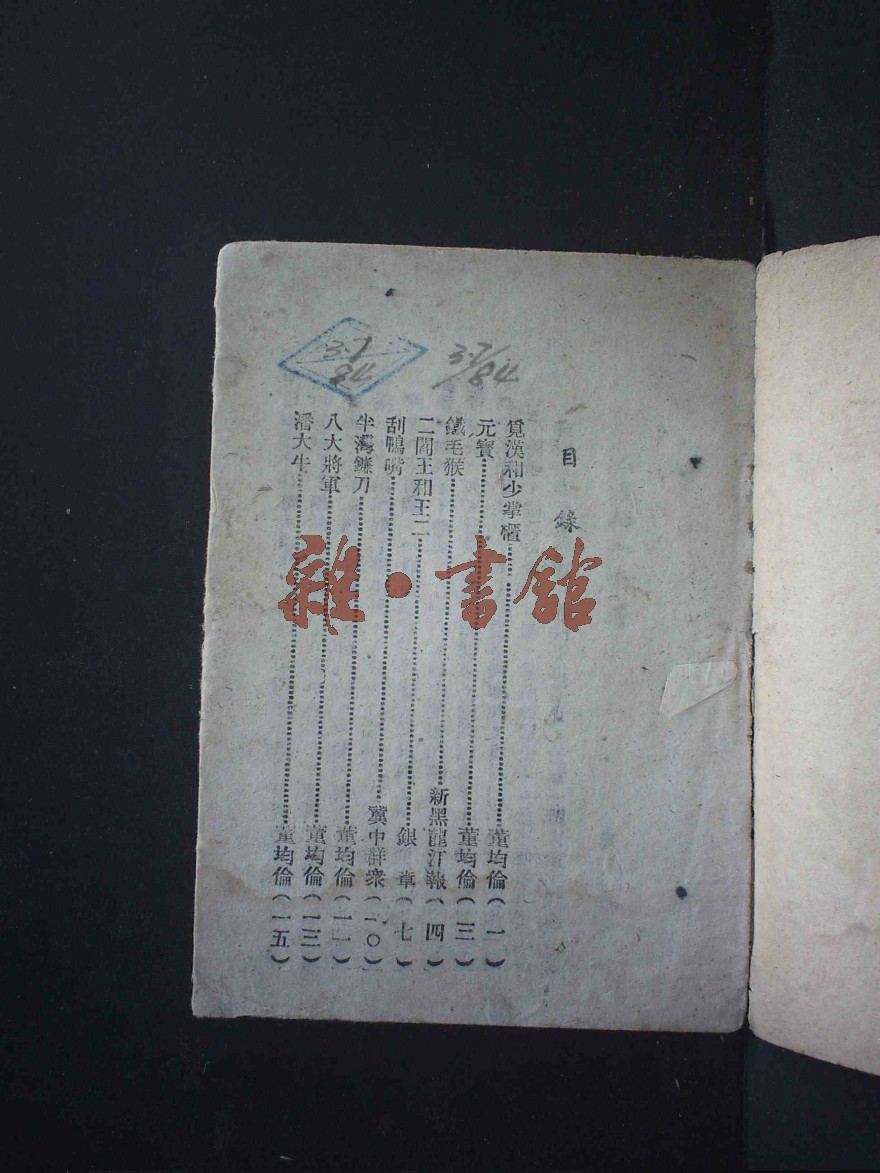 目錄
覓漢和少掌櫃……董均倫(一)
元寶……董均倫(三)
鐵毛猴……新黑龍江報(四)
二閻王和王二……銀章(七)
刮鴨嘴……冀中群衆(一〇)
半灣鐮刀……董均倫(一一)
八大將軍……董均倫(一三)
潘大牛……董均倫(一五)
3.7/84
3.7/84
雜·書館